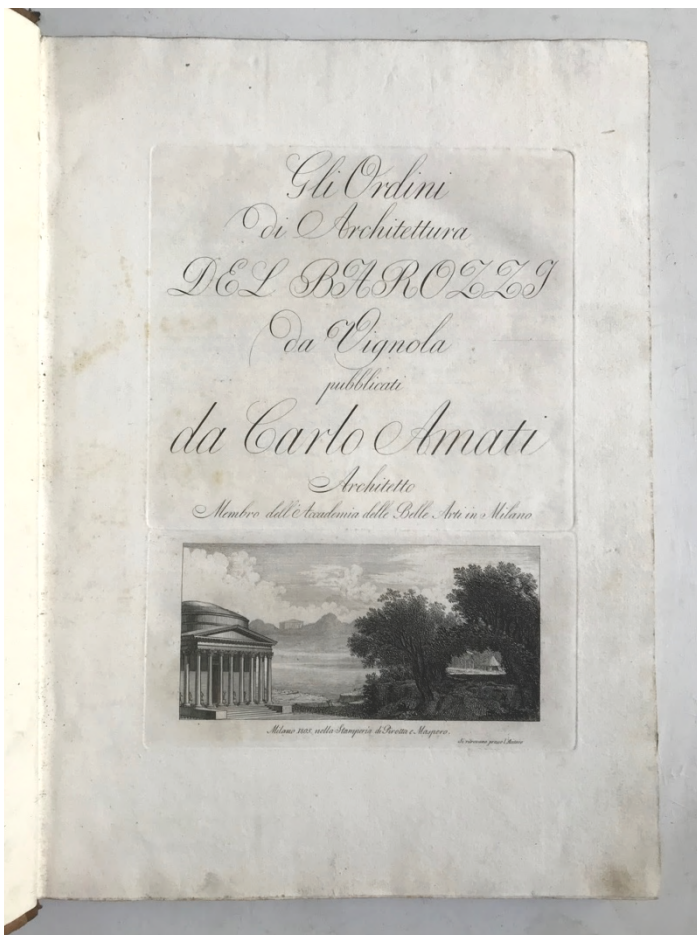 Gli Ordini
di Architettura
DEL BAROZZI
da Vignola
pubblicati
da Carlo Amati
Architetto
Membro dell'Accademia delle Belle Arti in Milano
Milano 1805, nella Stamperia di Pirotta e Maspero.